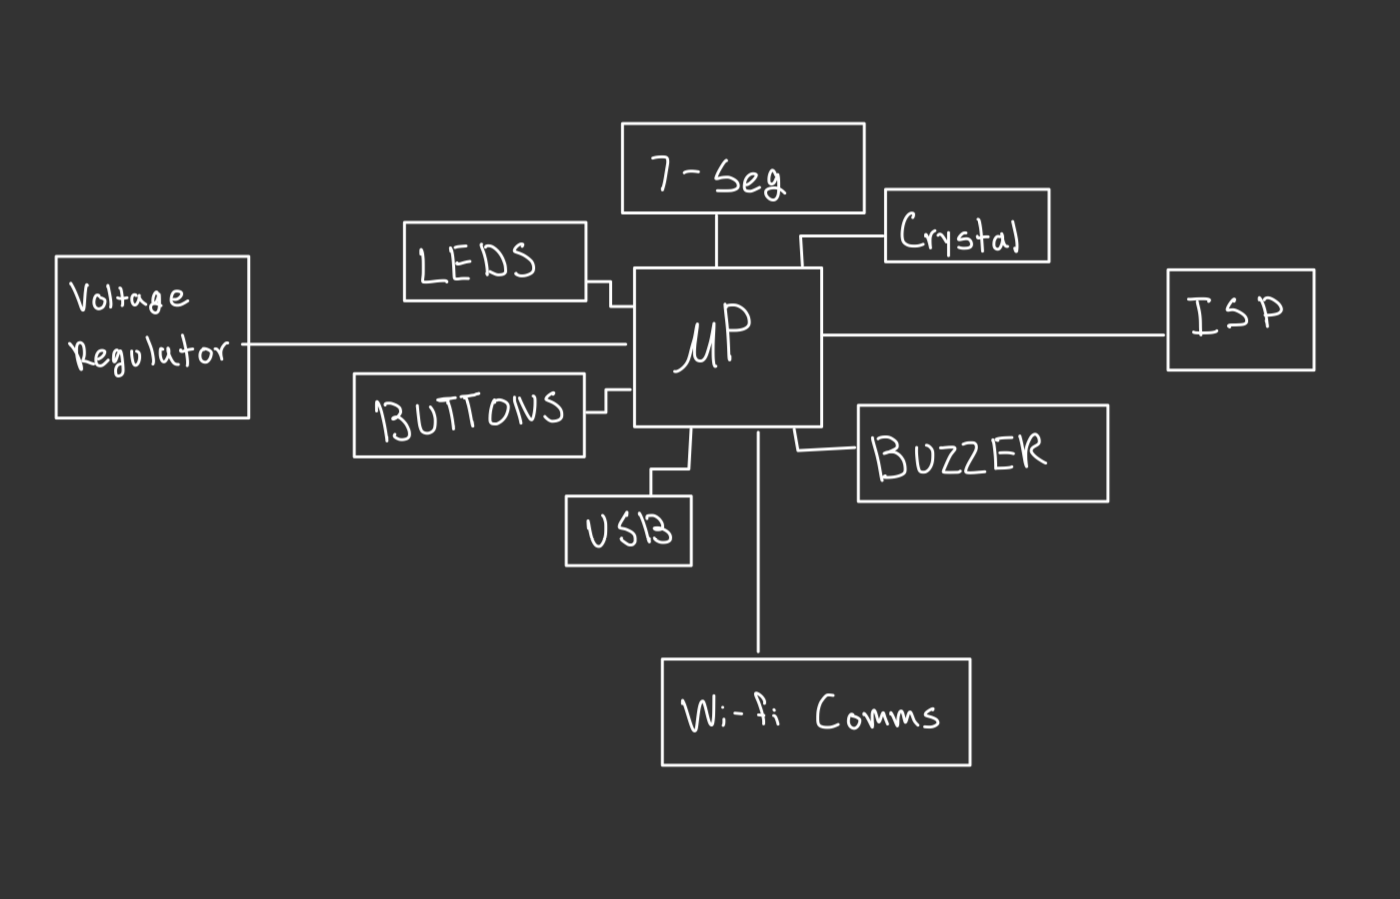 7-Seg
Crystal
LEDS
Voltage
Regulator
μP
ISP
BUTTONS
BUZZER
USB
Wi-fi Comms